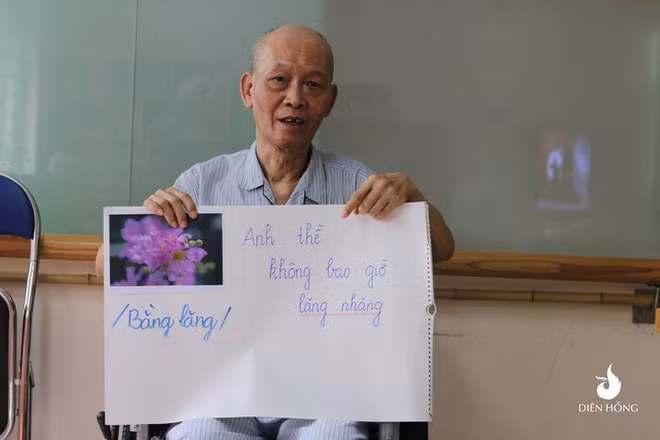 Anh thề
không bao giờ
lăng nhăng
/Bằng lăng/
DIÊN HỒNG